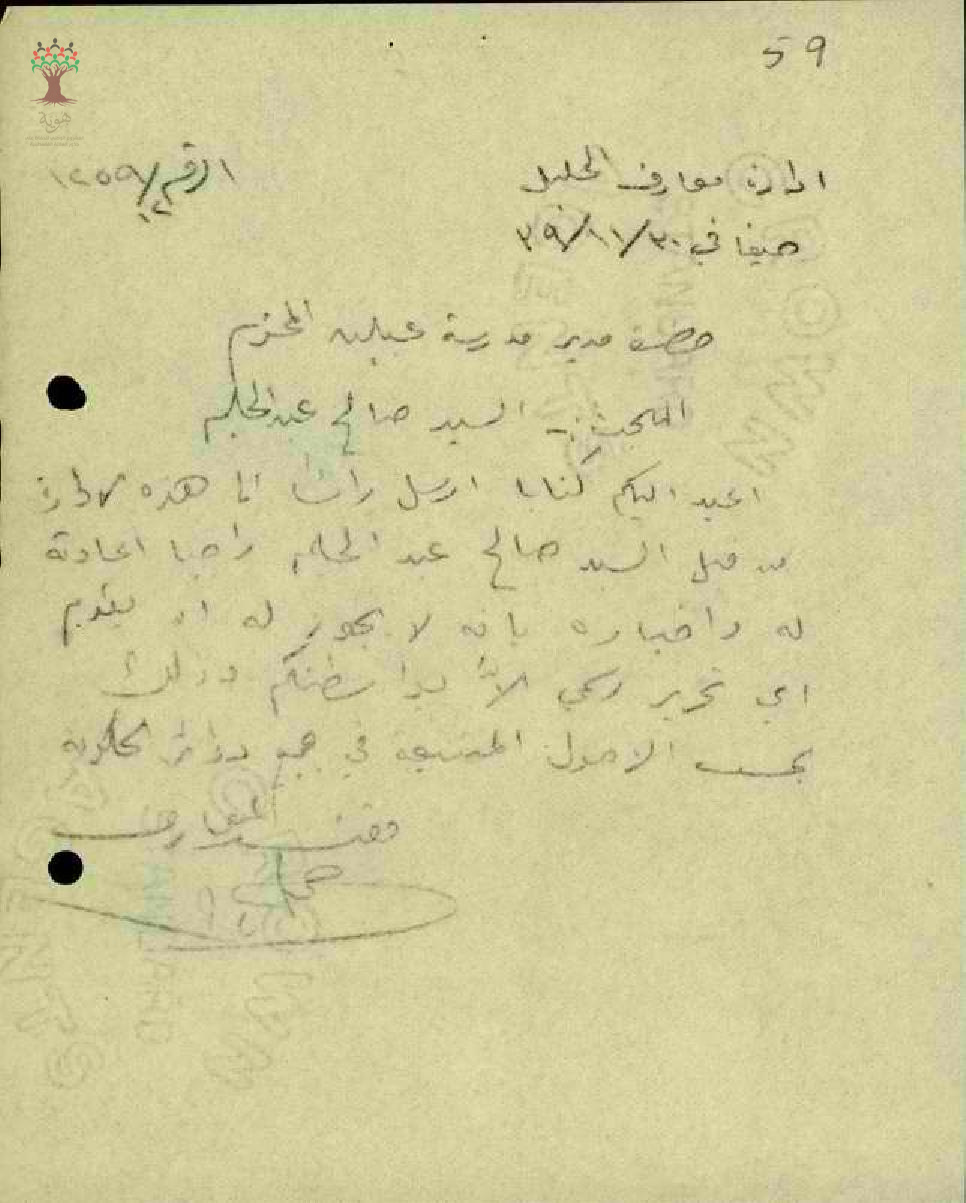 59
ادارة معارف الجليل
الرقم ١٢٥٩/١٢
حيفا في ٣٠/١١/٣٩
حضرة مدير مدرسة عبلين المحترم
المبحث :- السيد صالح عبدالحليم
اعيد اليكم كتابا ارسل رأسا الى هذه الادارة
من قبل السيد صالح عبد الحليم راجيا اعادته
له واخباره بانه لا يجوز له ان يقدم
اي تحرير رسمي الا بواسطتكم وذلك
بحسب الاصول المتبعة في جميع دوائر الحكومة
مفتش المعارف
هوية